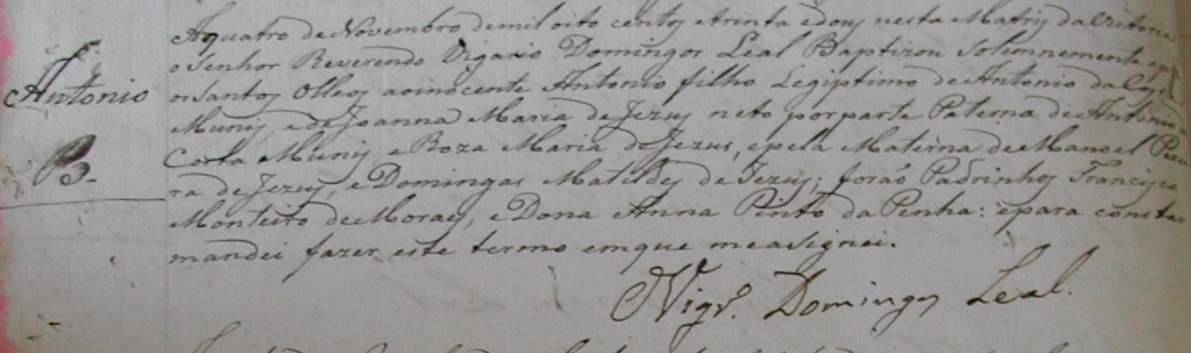 Aquatro de Novembro demil oito centos etrinta edous nesta Matriz da Victoria
o Senhor Reverendo Vigario Domingos Leal Baptizou Solemnemente epos
os Santos Olleos aoinocente Antonio filho Legiptimo de Antonio da
Antonio
Muniz, ede Joanna Maria de Jezus neto porparte Paterna de Antonio
Costa Muniz, e Roza Maria de Jezus, epela Materna de Manoel Perei
B.
ra de Jezus, e Domingas Matildes de Jezus; forão Padrinhos Francisco
Monteiro de Moraes, e Dona Anna Pinto da Penha: epara constar
mandei fazer este termo emque measignei.
Vigr.o Domingos Leal.